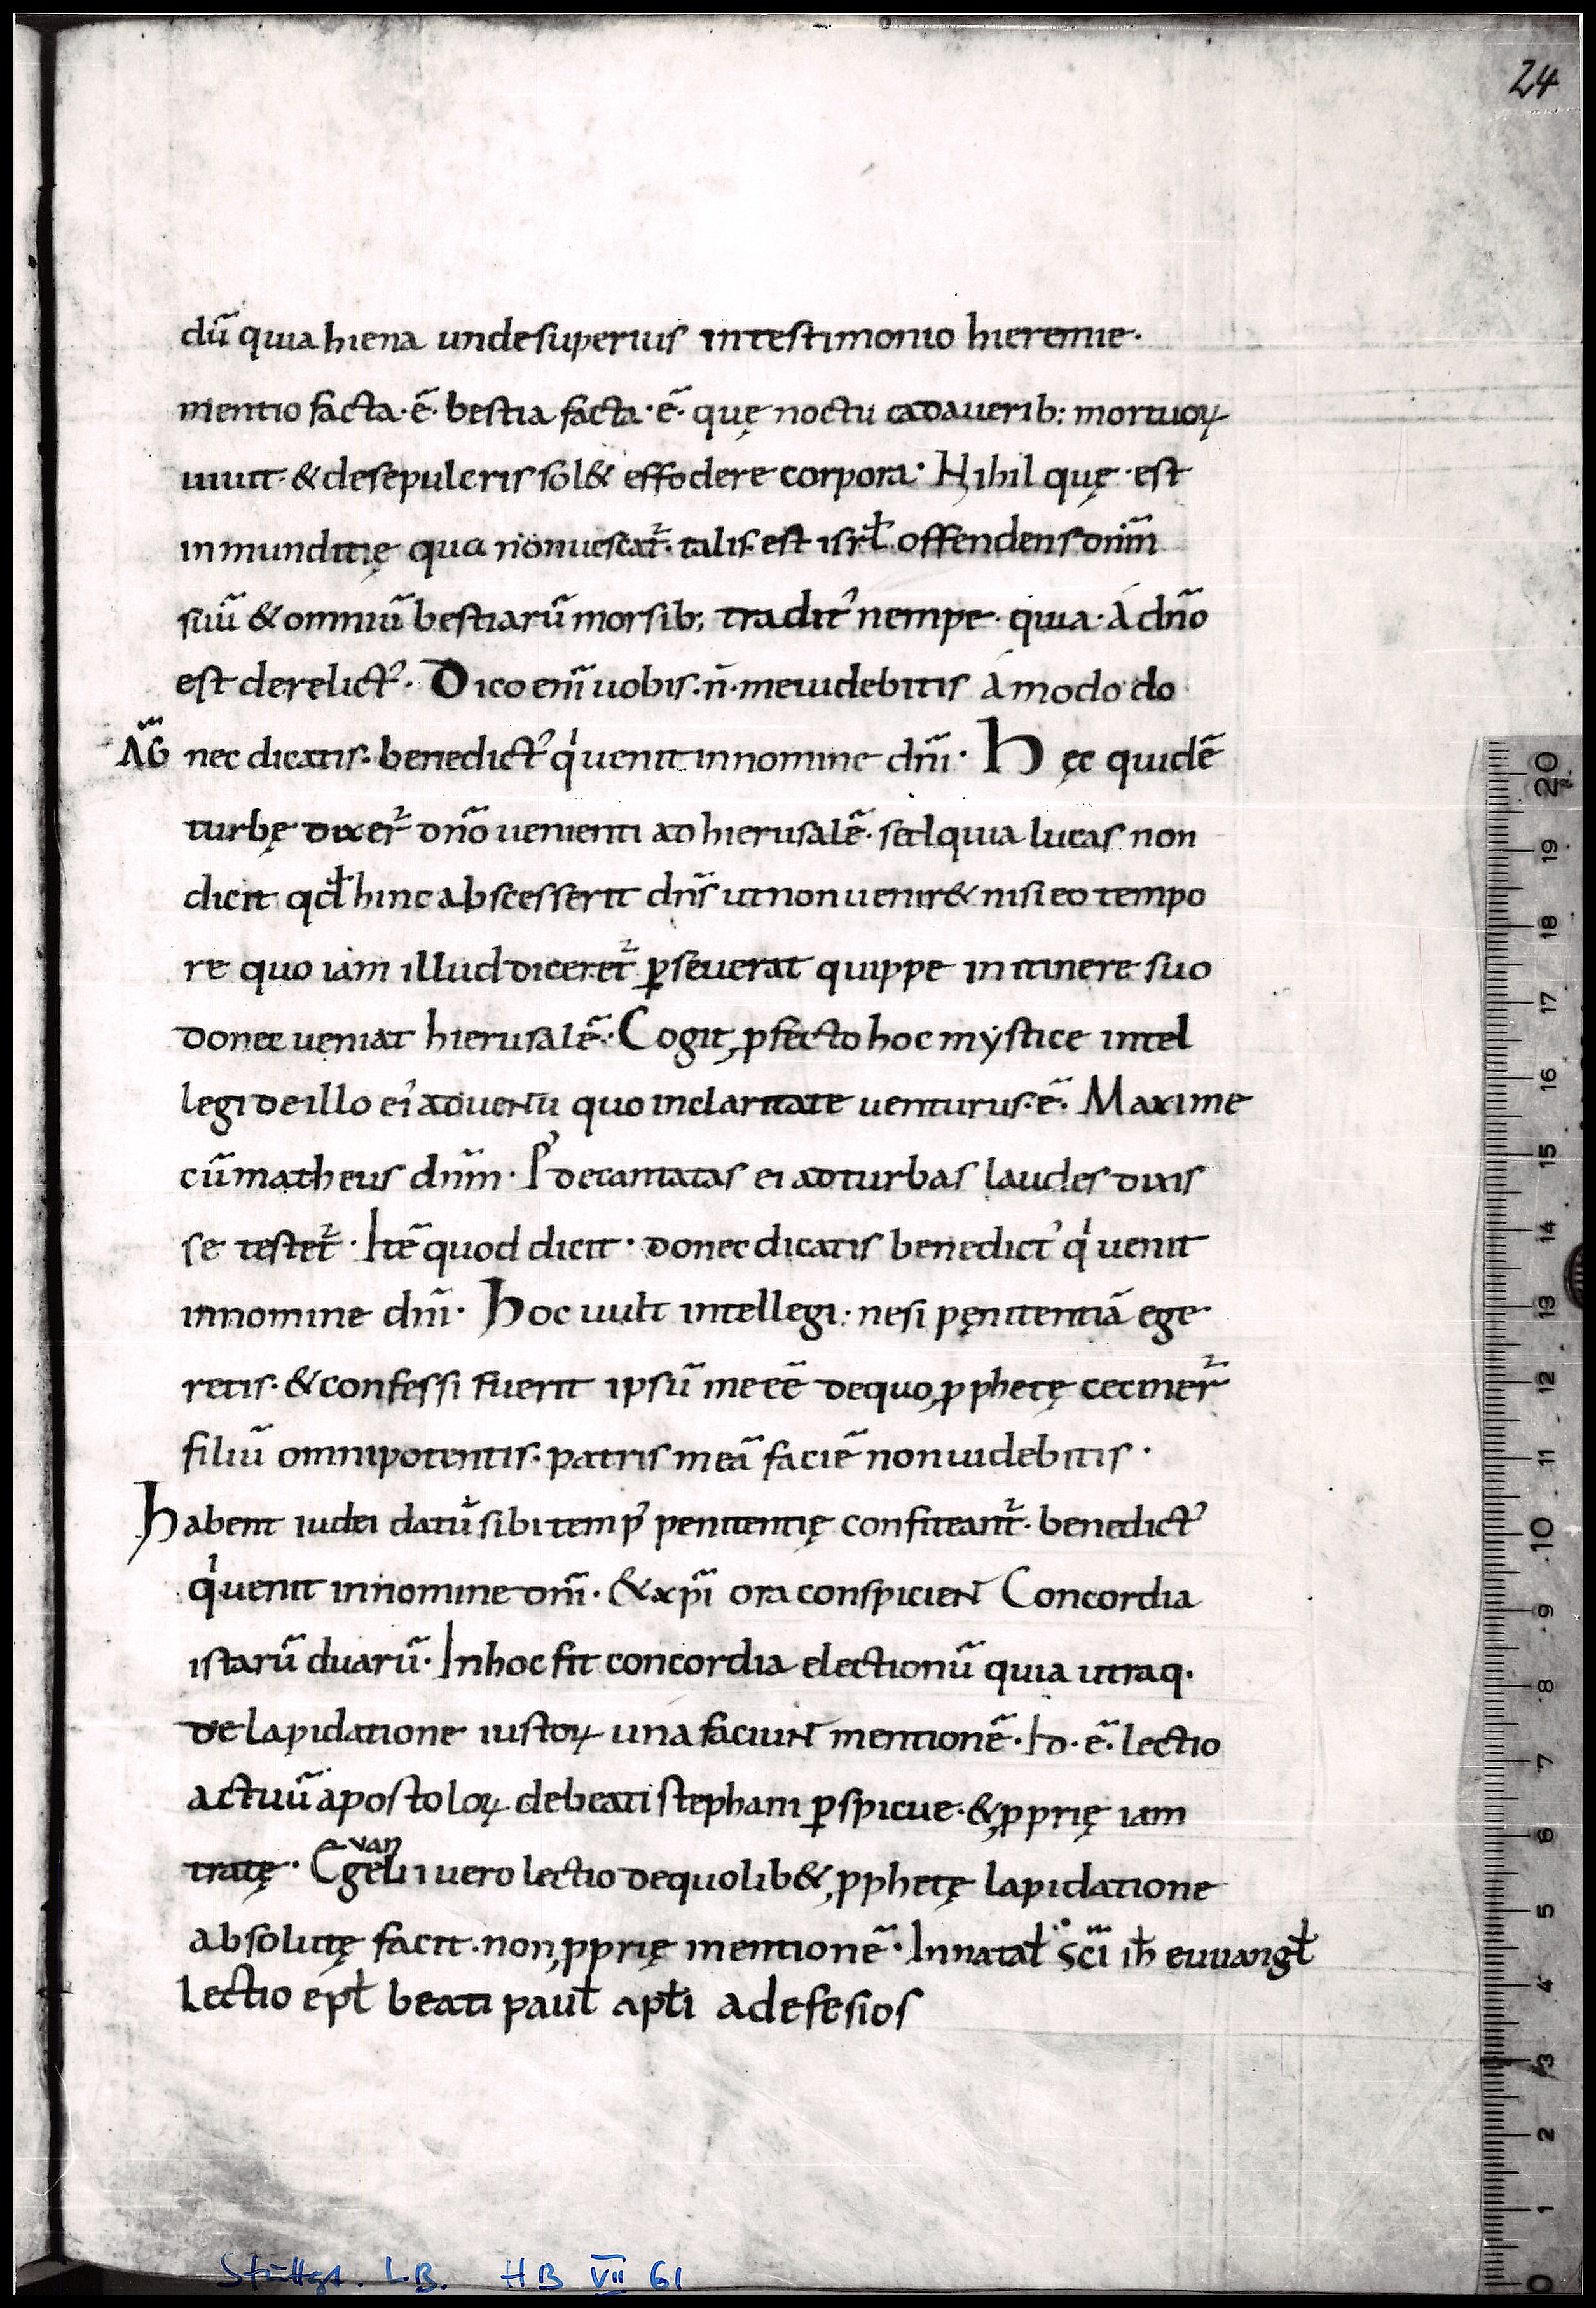 24
dū quia hiena unde superius in testimonio hieremie·
mentio facta·ē· bestia facta·ē· quę noctu cadauerib; mortuoꝝ
uiuit· & de sepulcris sol& effodere corpora· Nihil quę·est
inmunditię qua non uescat̃· talis·est isrł offendens dnm̄
suū & omniū bestiarū morsib; tradit᾽ nempe· quia·á dn̄o
est derelict᾽· Dico enī uobis·n̄·me uidebitis á modo do
AḠ nec dicatis· benedict᾽ q¹ uenit in nomine dn̄i· Hęc quidē
turbę dixer̃ dn̄o uenienti ad hierusalē· sed quia lucas non
dicit qđ hinc abscesserit dn̄s ut non uenir& nisi eo tempo
re quo iam illud diceret̃ ꝑseuerat quippe in itinere suo
donec ueniat hierusalē· Cogit ꝓfecto hoc mẏstice intel
legi de illo ei᾽ aduentu quo in claritate uenturus·ē· Maxime
cū matheus dnm̄· P᾽ decantatas ei ad turbas laudes dixis
se testet̃· Itē quod dicit· donec dicatis benedict᾽ q¹ uenit
in nomine dn̄i· Hoc uult intellegi· nesi pęnitentiā ege
retis· & confessi fuerit ipsū me eē de quo ꝓphetę ceciner̃
filiū omnipotentis· patris meā faciē non uidebitis·
Habent iudei datū sibi temp᾽ penitentię confiteant̃· benedict᾽
q¹ uenit in nomine dn̄i· & xp̄i ora conspicient Concordia
istarū duarū· In hoc fit concordia electionū quia utraq·
de lapidatione iustoꝝ una faciunt mentionē· Id·ē· lectio
actuū apostoloꝝ de beati stephani ꝑspicue· & ꝓprię iam
tratę· Evangelii uero lectio de quolib& ꝓphetę lapidatione
absolutę facit· non ꝓprię mentionē· In natał sc̄i ioh euuangł
Lectio epł beati pauł apłi ad efesios
20
19
18
17
16
15
14
13
12
11
10
9
8
7
6
5
4
3
2
1
0
Stuttgt. L.B. HB VII 61